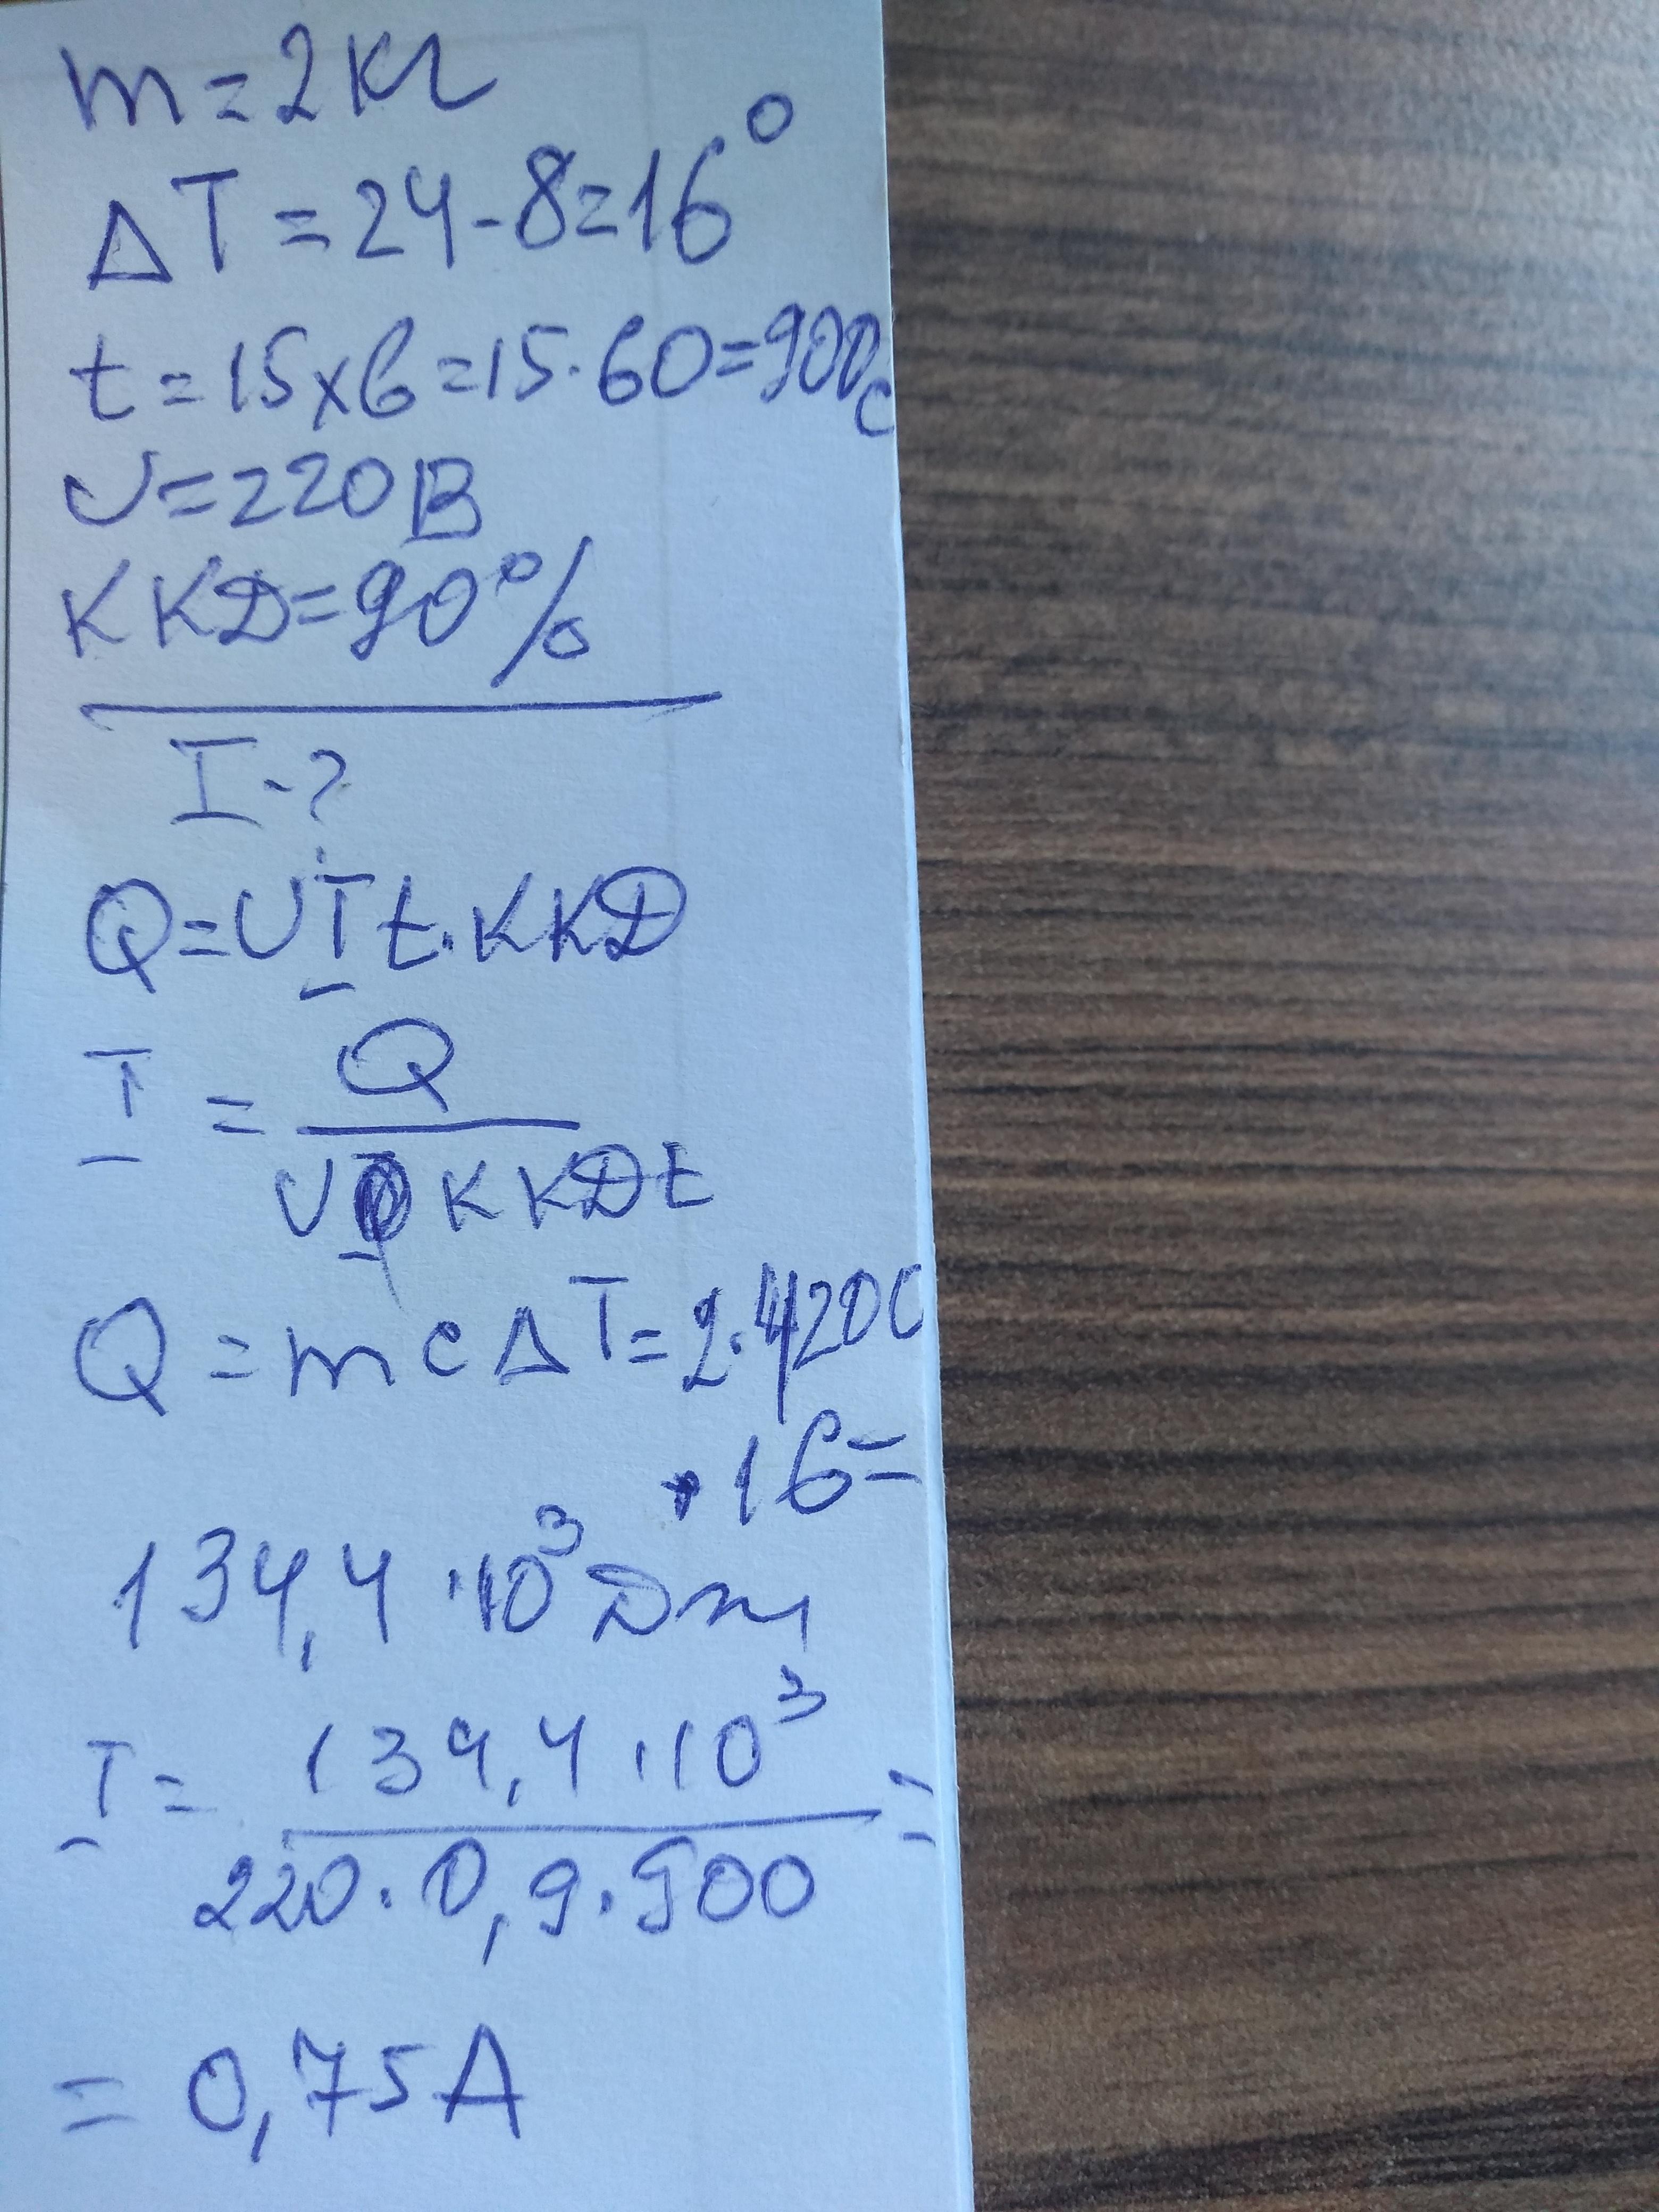 m = 2 кг
ΔT = 24 - 8 = 16°
t = 15 хв = 15·60 = 900 с
U = 220 В
ККD = 90%
I - ?
Q = U I t · ККD
I = Q / U ККD t
Q = m c ΔT = 2·4200
·16 =
134,4·10³ Dж
I = 134,4·10³ / 220·0,9·900 =
= 0,75 А